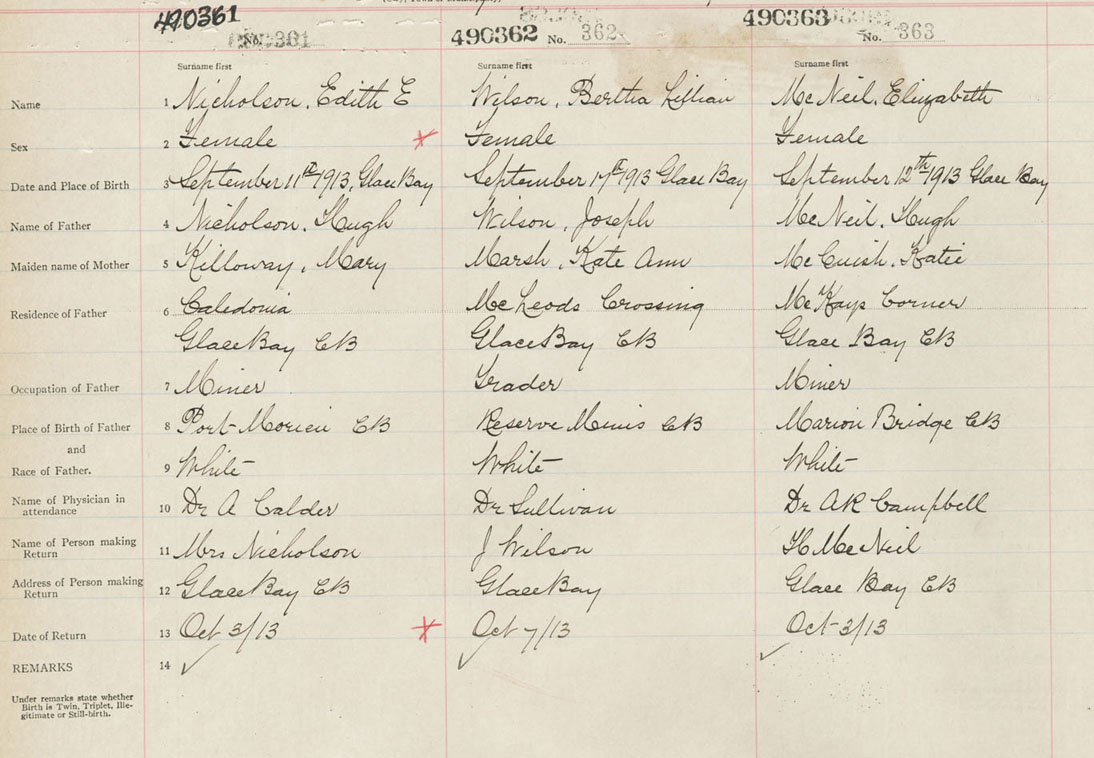 490361
No. 361
490362 No. 362
490363 No. 363
Surname first Surname first Surname first
Name 1 Nicholson, Edith E Wilson, Bertha Lillian McNeil, Elizabeth
Sex 2 Female Female Female
Date and Place of Birth 3 September 11th 1913, Glace Bay September 17th 1913 Glace Bay September 12th 1913 Glace Bay
Name of Father 4 Nicholson, Hugh Wilson, Joseph McNeil, Hugh
Maiden name of Mother 5 Killoway, Mary Marsh, Kate Ann McCuish, Katie
Residence of Father 6 Caledonia McLeods Crossing McKays Corner
Glace Bay CB Glace Bay CB Glace Bay CB
Occupation of Father 7 Miner Trader Miner
Place of Birth of Father 8 Port Morien CB Reserve Mines CB Marion Bridge CB
and
Race of Father. 9 White White White
Name of Physician in
attendance 10 Dr A Calder Dr Sullivan Dr AR Campbell
Name of Person making
Return 11 Mrs Nicholson J Wilson H McNeil
Address of Person making
Return 12 Glace Bay CB Glace Bay Glace Bay CB
Date of Return 13 Oct 3/13 Oct 7/13 Oct 3/13
REMARKS 14
Under remarks state whether
Birth is Twin, Triplet, Ille-
gitimate or Still-birth.